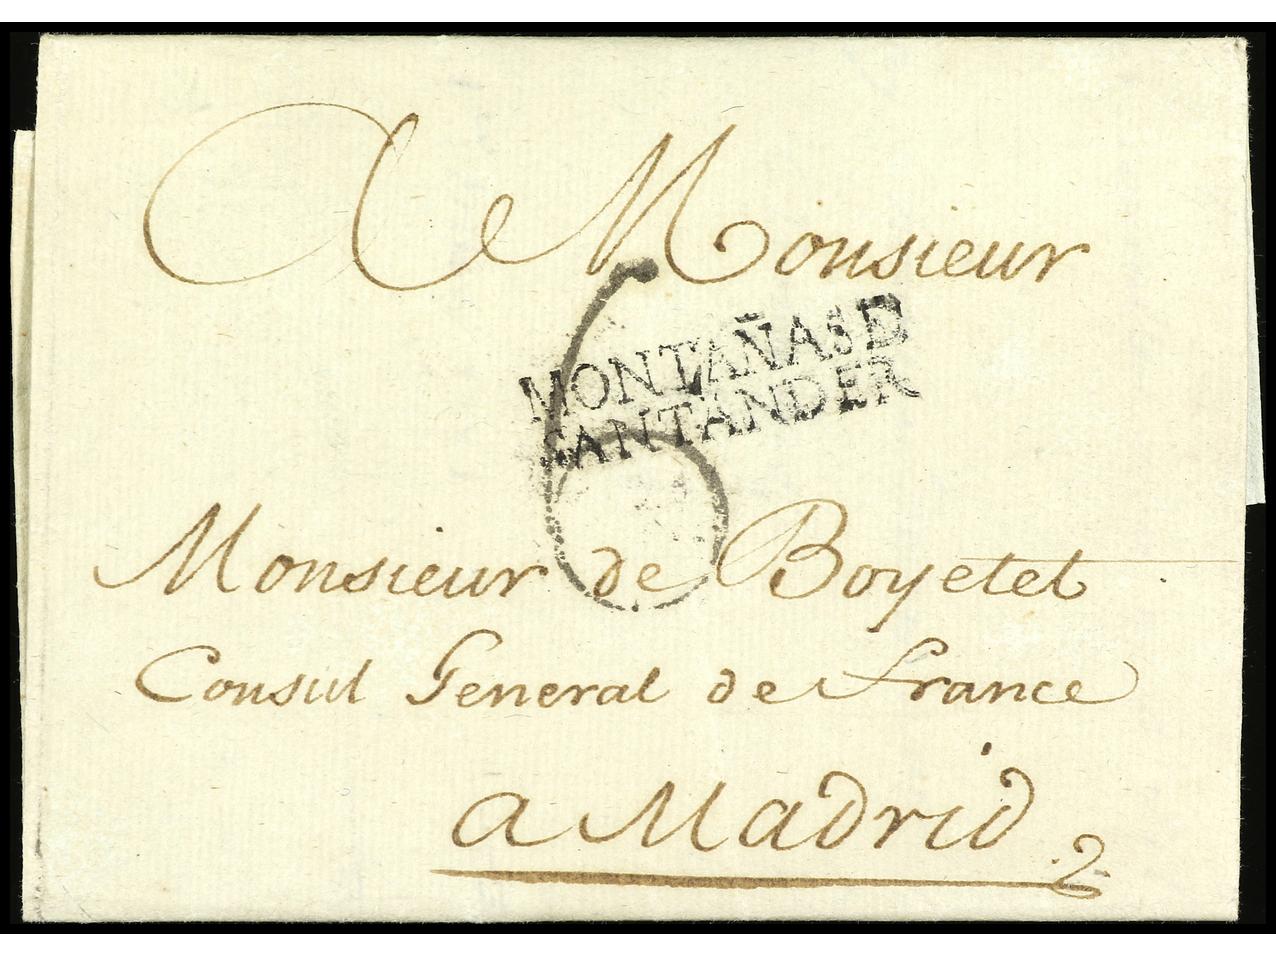 A Monsieur
6
MONTAÑAS D
SANTANDER
Monsieur de Boyetet
Consul General de France
a Madrid